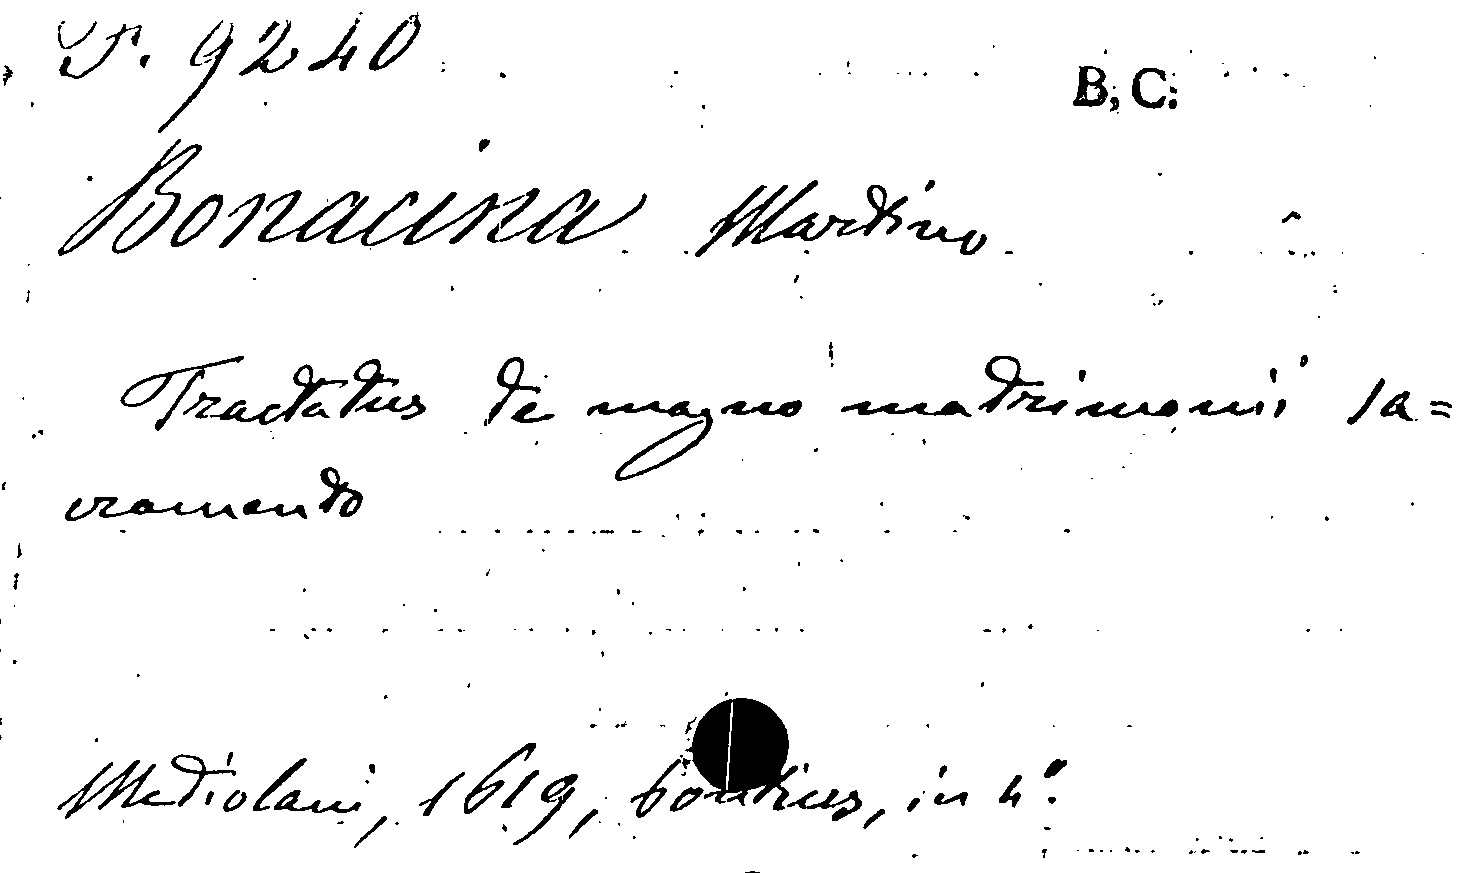 P. 9240
B, C:
Bonacina Martino
Tractatus de magno matrimonii sa=
cramento
Mediolani, 1619, bontius, in 4°.